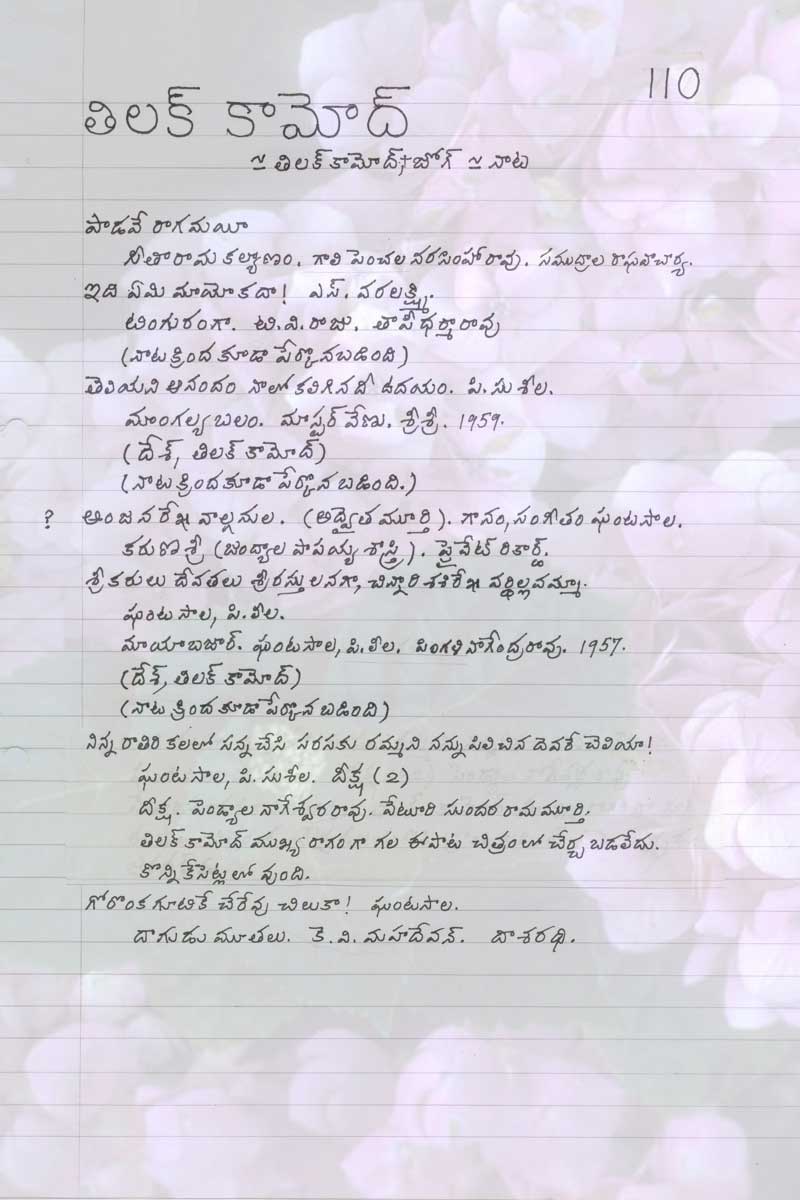 110
తిలక్ కామోద్
~ తిలక్ కామోద్ + జోగ్ ~ నాట
పాడవే రాగమయీ
సీతారామ కల్యాణం. గాలి పెంచల నరసింహారావు. సముద్రాల రాఘవాచార్య.
ఇది ఏమి మాయోకదా! ఎస్. వరలక్ష్మి.
టింగురంగా. టి.వి.రాజు. తాపీ ధర్మారావు
(నాట క్రింద కూడా పేర్కొనబడింది)
తెలియని ఆనందం నాలో కలిగినదీ ఉదయం. పి.సుశీల.
మాంగల్య బలం. మాస్టర్ వేణు. శ్రీశ్రీ. 1959.
(దేశ్, తిలక్ కామోద్)
(నాట క్రింద కూడా పేర్కొన బడింది.)
? అంజనరేఖ వాల్గనుల. (అద్వైత మూర్తి). గానం, సంగీతం ఘంటసాల.
కరుణశ్రీ (జంధ్యాల పాపయ్య శాస్త్రి). ప్రైవేట్ రికార్డ్.
శ్రీకరులు దేవతలు శ్రీరస్తు లనగా, చిన్నారి శశిరేఖ వర్ధిల్లవమ్మా.
ఘంటసాల, పి.లీల.
మాయాబజార్. ఘంటసాల, పి.లీల. పింగళి నాగేంద్రరావు. 1957.
(దేశ్, తిలక్ కామోద్)
(నాట క్రింద కూడా పేర్కొన బడింది)
నిన్న రాతిరి కలలో సన్న చేసి సరసకు రమ్మని నన్ను పిలిచిన దెవరే చెలియా!
ఘంటసాల, పి.సుశీల. దీక్ష (2)
దీక్ష. పెండ్యాల నాగేశ్వరరావు. వేటూరి సుందర రామమూర్తి.
తిలక్ కామోద్ ముఖ్య రాగం గా గల ఈపాట చిత్రంలో చేర్చ బడలేదు.
కొన్ని కేసెట్లలో వుంది.
గోరొంక గూటికే చేరేవు చిలుకా! ఘంటసాల.
దాగుడు మూతలు. కె.వి.మహదేవన్. దాశరథి.